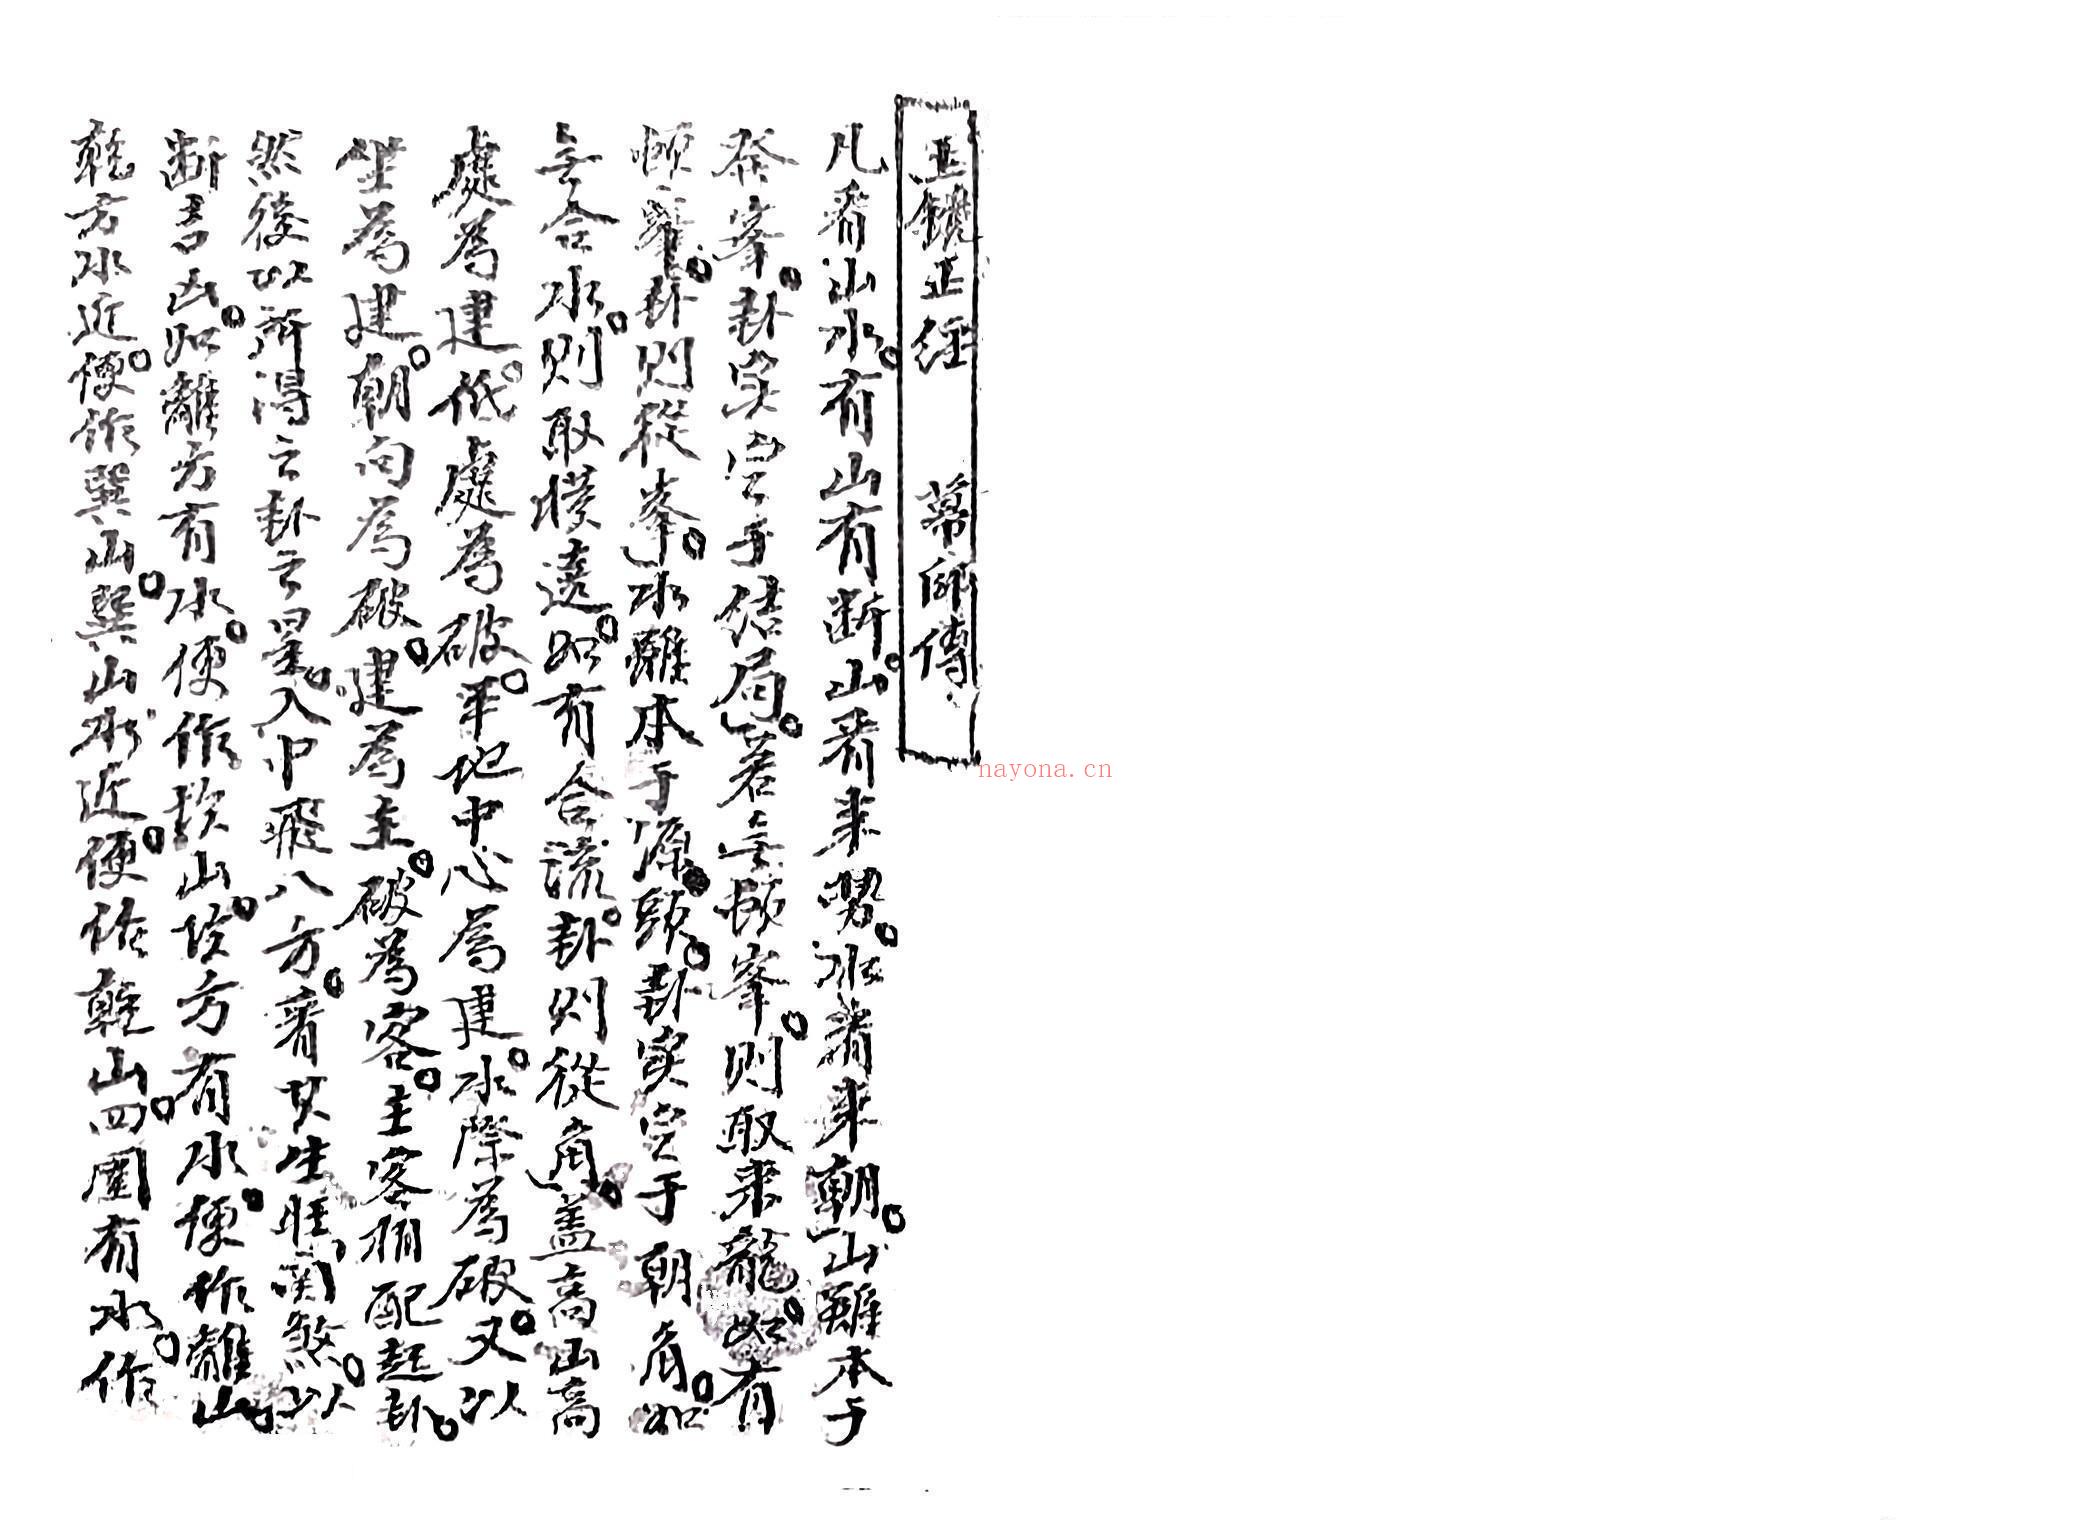 玉鏡正經 幕師傳
凡看山水。有山有断。山看来勢。水看来朝。山雖本于
發峯。卦実定于结局。若無頓峯。則取来龍。如有
頓峯。卦則從峯。水雖本于源頭。卦実定于朝肩。如
無合水。則取横遶。如有合流。卦則從角。盖高山高
處為建。低處為破。平地中心為建。水際為破。又以
坐為建。朝向為破。建為主。破為客。主客相配起卦。
然後以所得之卦之星。入中飛八方。看其生旺関煞。以
断吉凶。如離方有水。便作坎山。坎方有水。便作離山。
乾方水近。便作巽山。巽山水近。便作乾山。四圍有水。作
nayona.cn